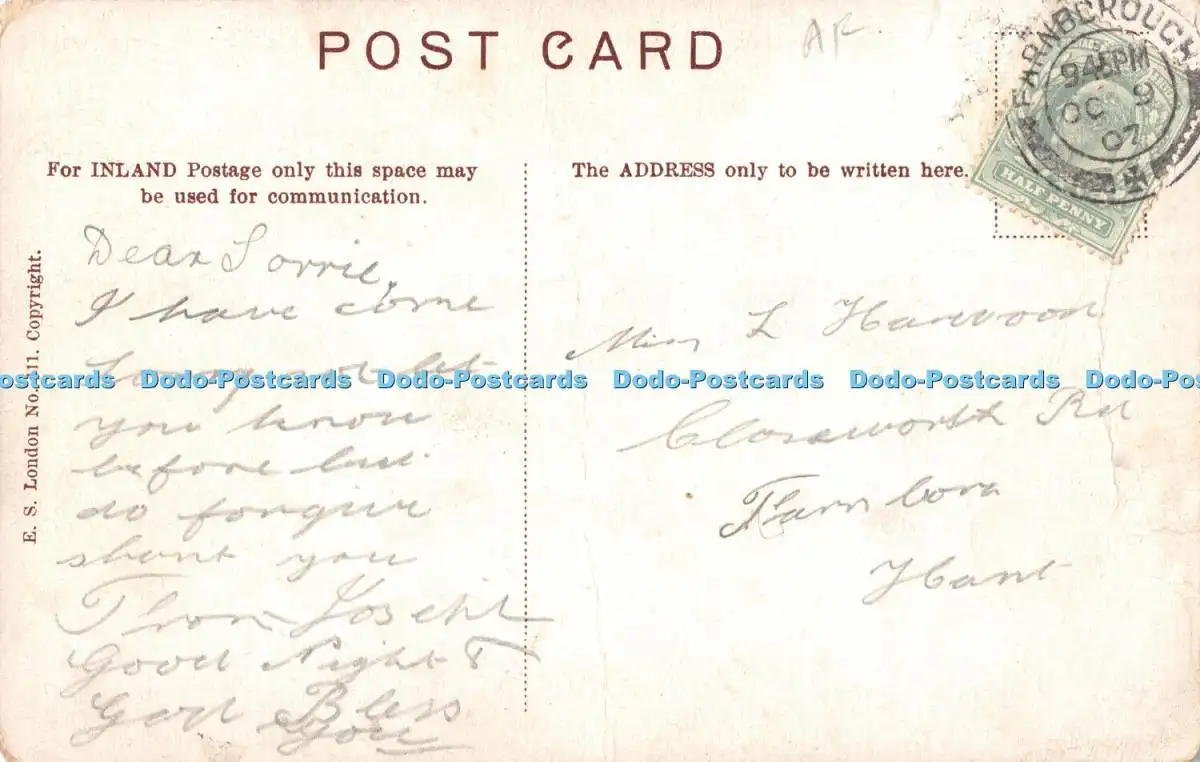 POST CARD
AF
FARNBOROUGH
945PM
OC 9
07
HALF PENNY
For INLAND Postage only this space may
be used for communication.
The ADDRESS only to be written here.
E. S. London No. 11. Copyright.
Dear Lorrie,
I have come
let
you know
before but
do forgive
shant you
From Joseph
Good Night &
God Bless
you
Miss L Harwood
Rd
Farnboro
Hant
Dodo-Postcards Dodo-Postcards Dodo-Postcards Dodo-Postcards